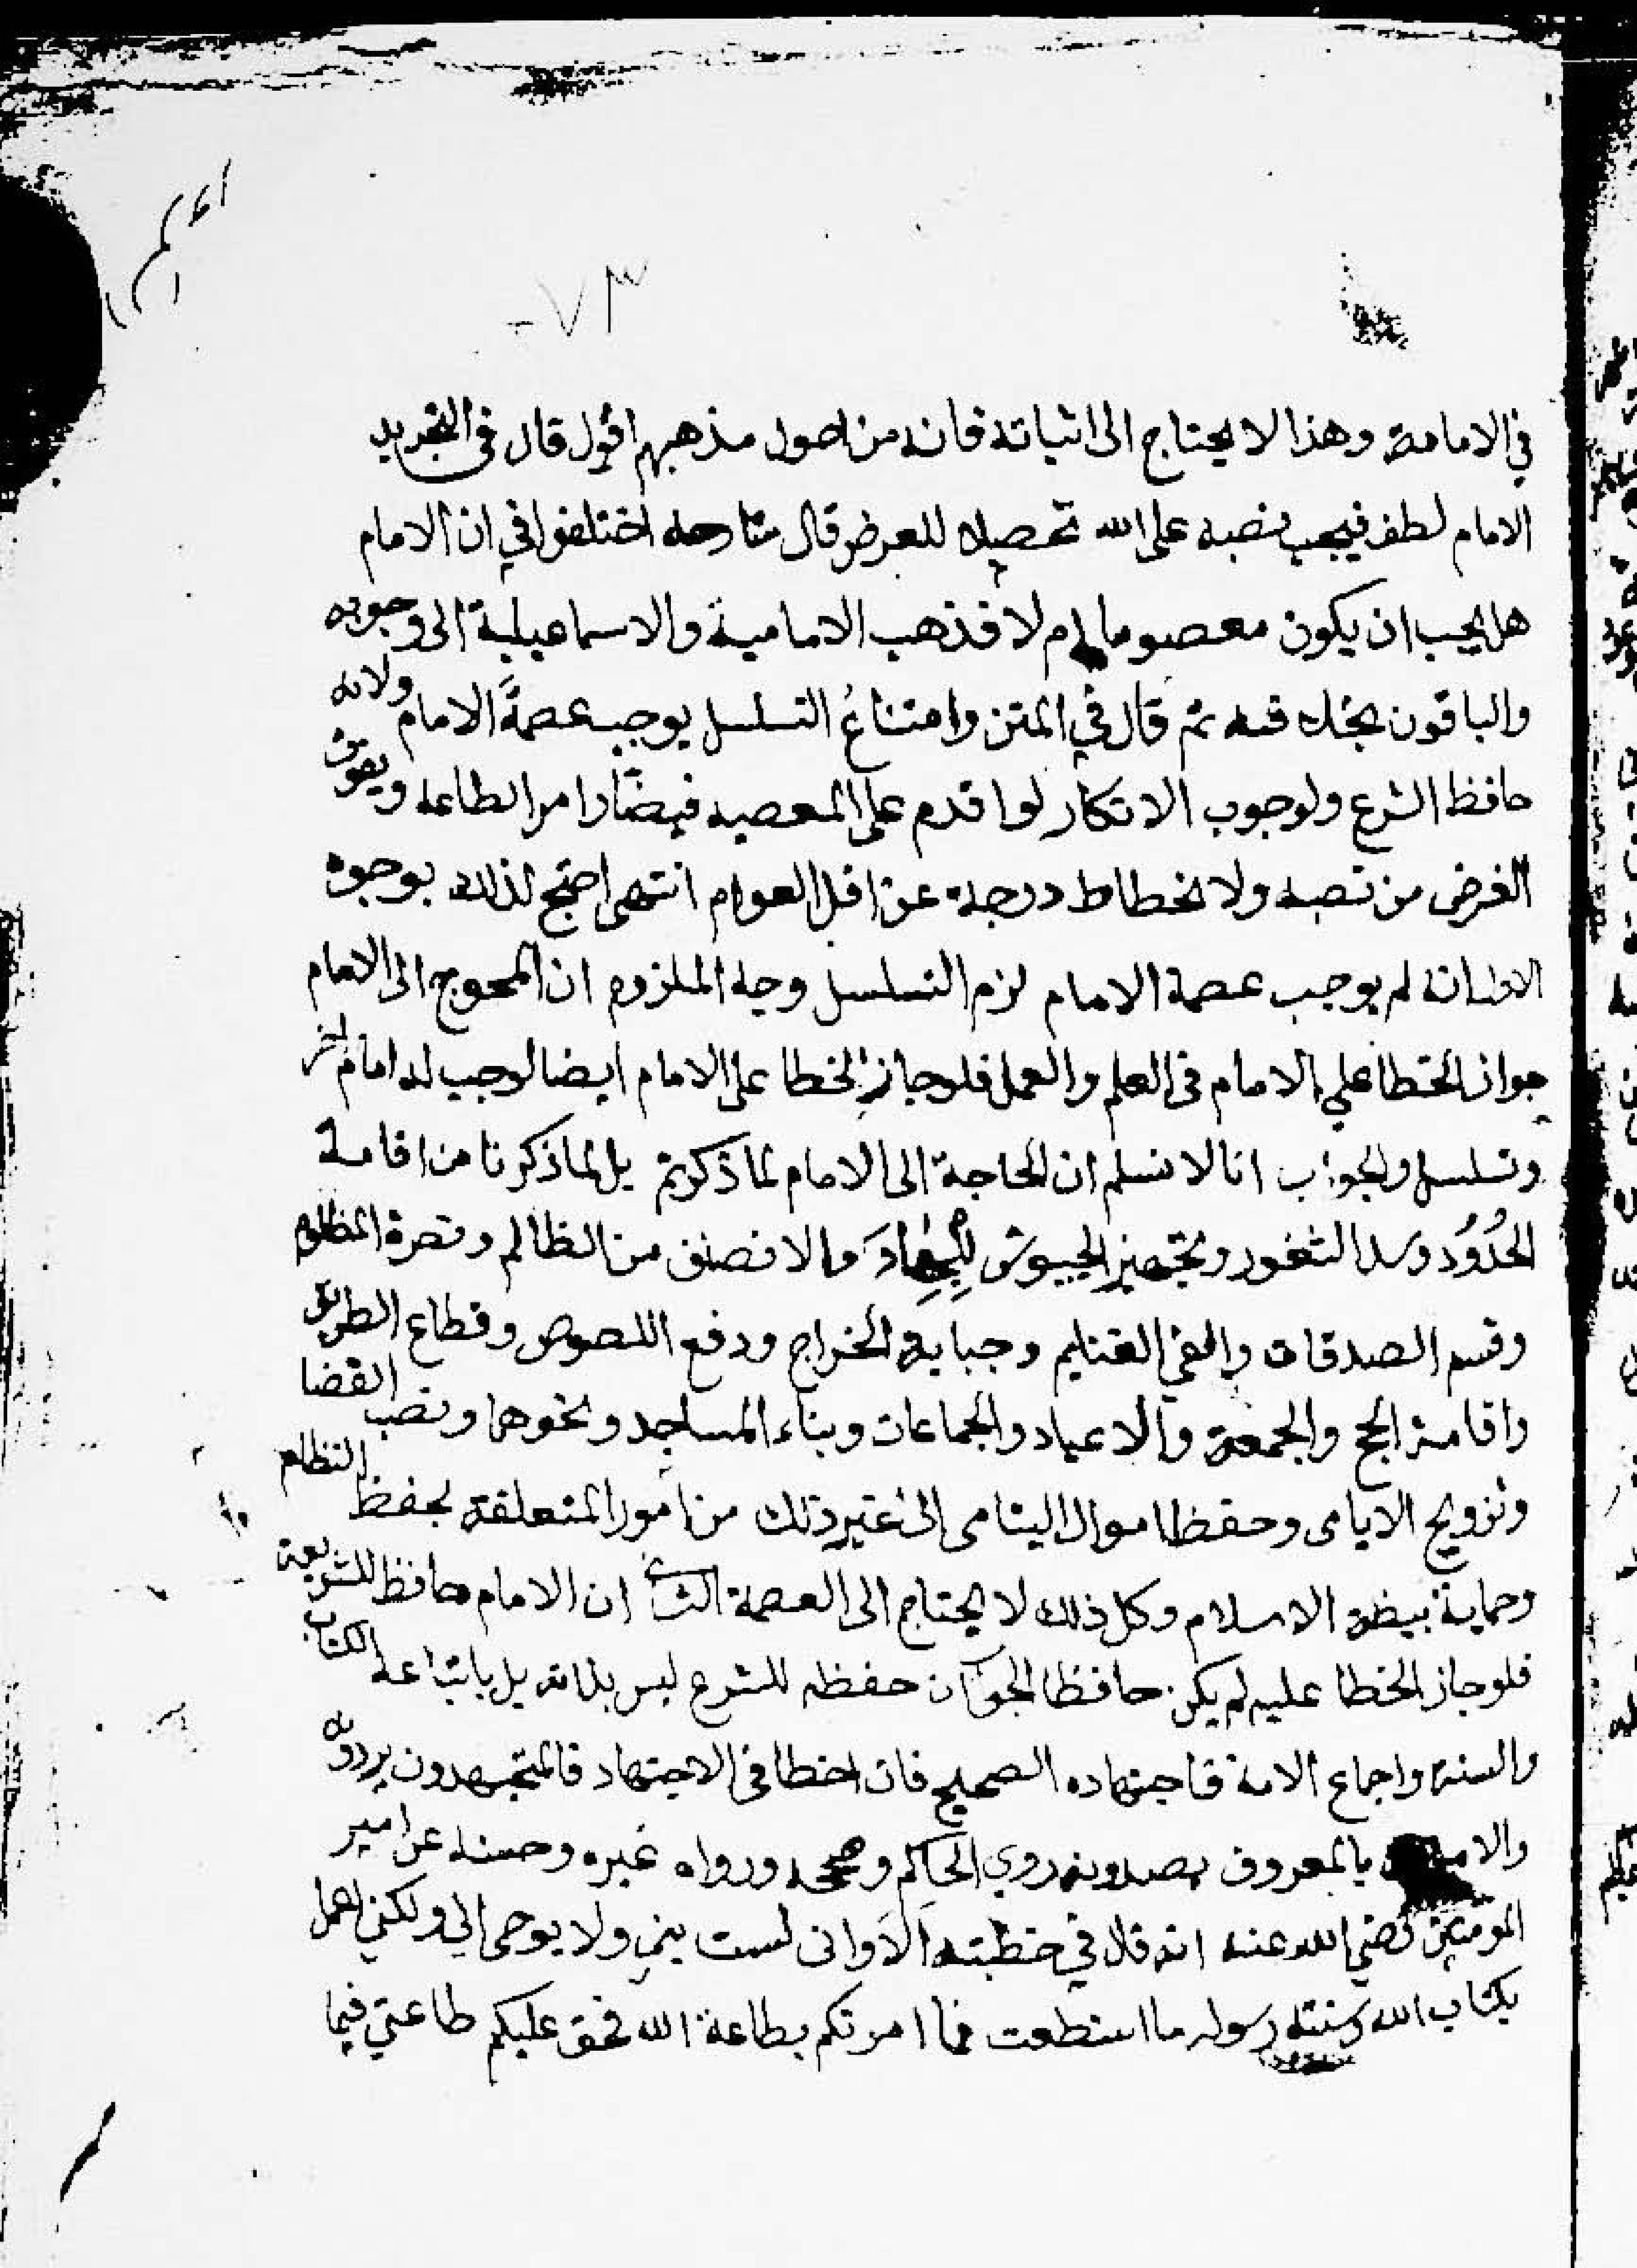 ٧٣
في الامامة وهذا لا يحتاج الى اثباته فانه من اصول مذهبهم اقول قال في التجريد
الامام لطف فيجب نصبه على الله تحصيلا للعرض قال شارحه اختلفوا في ان الامام
هل يجب ان يكون معصوما ام لا فذهب الامامية والاسماعيلية الى وجوبه
والباقون بخلافه ثم قال في المتن وامتناعُ التسلسل يوجب عصمةَ الامام ولانه
حافظ الشرع ولوجوب الانكار لو اقدم على المعصيه فيضاد امر الطاعه ويفوت
الغرض من نصبه ولانحطاط درجة عن اقل العوام انتهى احتج لذلك بوجوه
الاول انه لم يوجب عصمة الامام لزم التسلسل وجه الملزوم ان المحوج الى الامام
جواز الخطا علي الامام في العلم والعمل فلو جاز الخطا على الامام ايضا لوجب له امام اخر
وتسلسل والجواب انا لا نسلم ان الحاجة الى الامام لما ذكرتم بل لما ذكرنا من اقامة
الحُدُود وسد الثغور وتجهيز الجيوش للجِهَادَ والانصف من الظالم ونصرة المظلوم
وقسم الصدقات والفي الغنايم وجباية الخراج ودفع اللصوص وقطاع الطريق
واقامة الحج والجمعة والاعياد والجماعات وبناء المساجد ونحوها ونصب القضا
وتزويج الايامى وحفظ اموال اليتامى الى غير ذلك من امور المتعلقة بحفظ النظام
وحماية بيضة الاسلام وكل ذلك لا يحتاج الى العصمة الثانى ان الامام حافظ للشريعة
فلو جاز الخطا عليه لم يكن حافظا الجواب ان حفظه للشرع ليس بذاته بل باتباعه الكتاب
والسنة واجماع الامة فاجتهاده الصحيح فان اخطا في الاجتهاد فالمجتهدون يردونه
والامرون بالمعروف يصدونه روي الحاكم وصححه ورواه غيره وحسنه عن امير
المومنين رضي الله عنه انه قال في خطبته الَا وانى لست بنبي ولا يوحى الي ولكني اعمل
بكتاب الله وسنته رسوله ما استطعت فما امرتكم بطاعة الله فحق عليكم طاعتي فيما